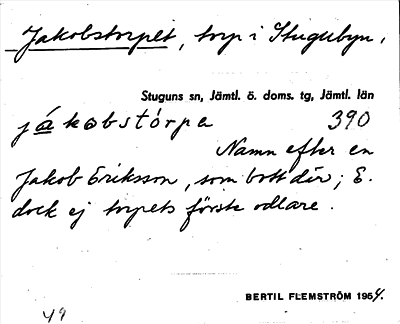 Jakobstorpet, torp i Stugubyn,
Stuguns sn, Jämtl. ö. doms. tg, Jämtl. län
jákobstórpa 390
Namn efter en
Jakob Eriksson, som bott där; E.
dock ej torpets förste odlare.
BERTIL FLEMSTRÖM 1954.
49